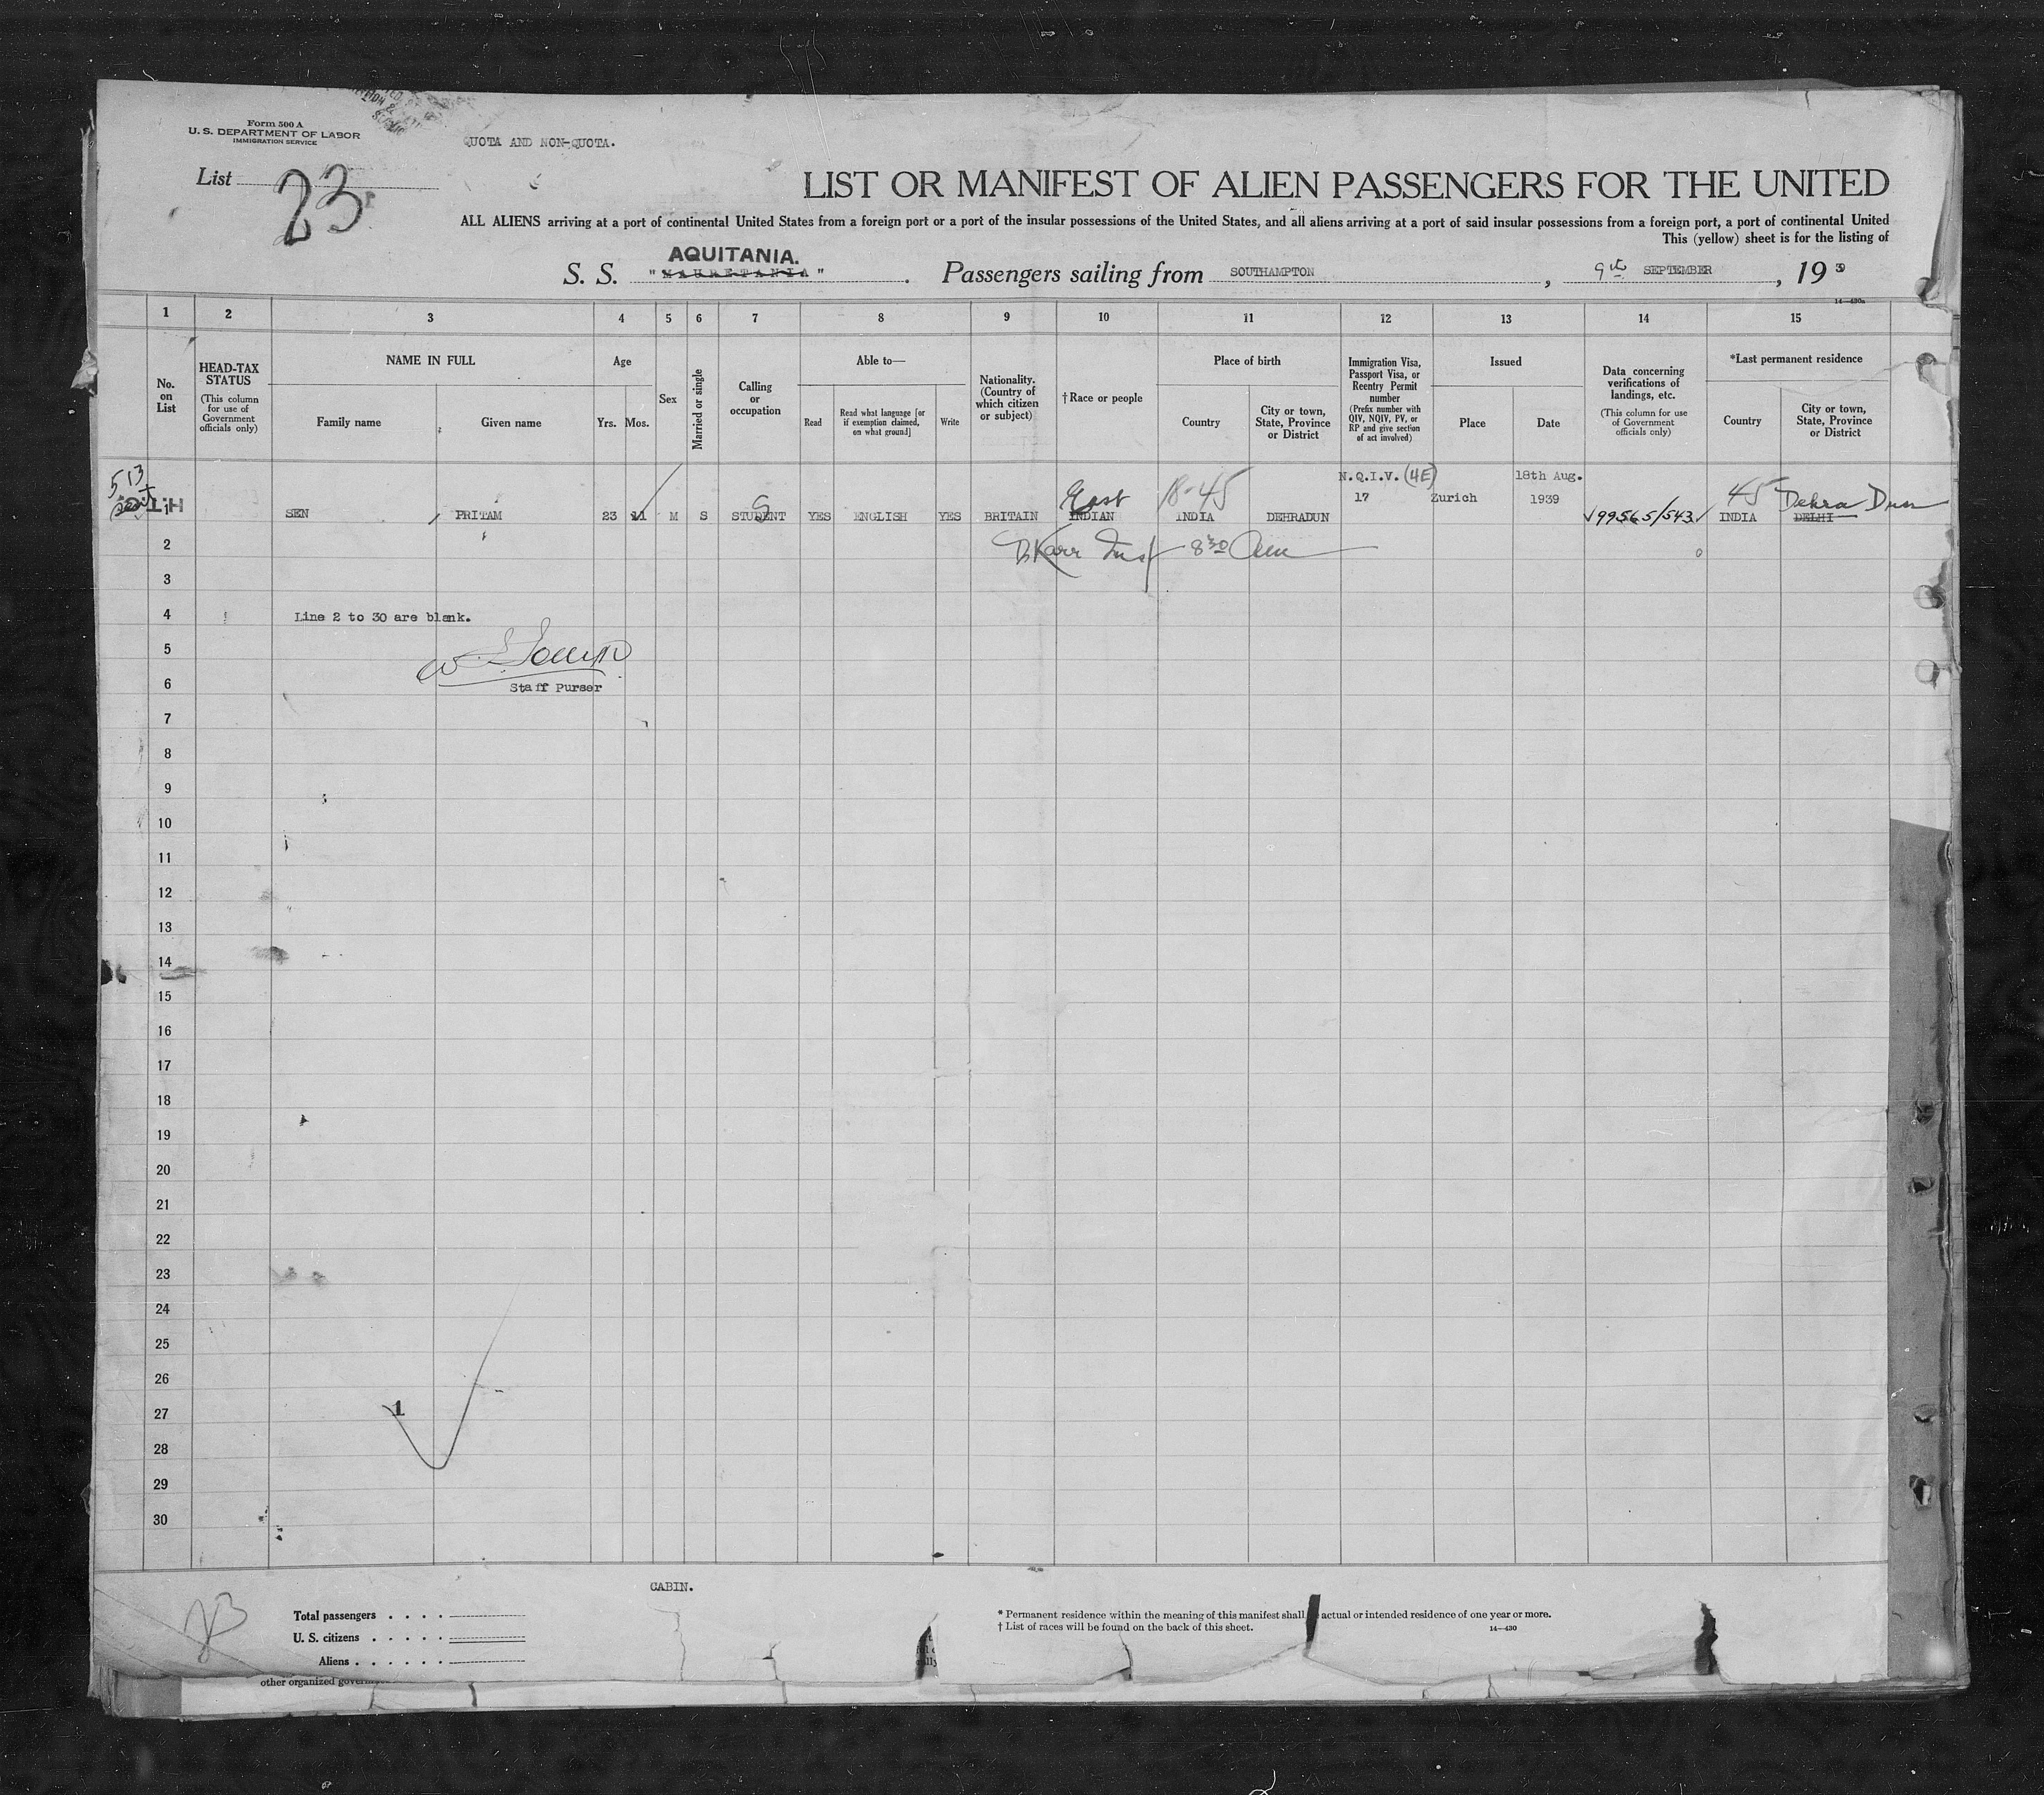 Form 500 A
U. S. DEPARTMENT OF LABOR
IMMIGRATION SERVICE
QUOTA AND NON-QUOTA.
List 23
LIST OR MANIFEST OF ALIEN PASSENGERS FOR THE UNITED
ALL ALIENS arriving at a port of continental United States from a foreign port or a port of the insular possessions of the United States, and all aliens arriving at a port of said insular possessions from a foreign port, a port of continental United
This (yellow) sheet is for the listing of
AQUITANIA.
S. S. "MAURETANIA". Passengers sailing from SOUTHAMPTON, 9th SEPTEMBER, 19 39
14—430a
1 2 3 4 5 6 7 8 9 10 11 12 13 14 15
No. on List
HEAD-TAX STATUS
(This column for use of Government officials only)
NAME IN FULL
Family name
Given name
Age
Yrs. Mos.
Sex
Married or single
Calling or occupation
Able to—
Read
Read what language [or if exemption claimed, on what ground]
Write
Nationality. (Country of which citizen or subject)
†Race or people
Place of birth
Country
City or town, State, Province or District
Immigration Visa, Passport Visa, or Reentry Permit number
(Prefix number with QIV, NQIV, PV, or RP and give section of act involved)
Issued
Place
Date
Data concerning verifications of landings, etc.
(This column for use of Government officials only)
*Last permanent residence
Country
City or town, State, Province or District
513 East 18-45 N.Q.I.V. (4E) 18th Aug. 45 Dehra Dun
17 Zurich 1939
SEN, PRITAM 23 11 M S STUDENT YES ENGLISH YES BRITAIN INDIAN INDIA DEHRADUN 99565/543 INDIA DELHI
2
3
4 Line 2 to 30 are blank.
5
6 Staff Purser
7
8
9
10
11
12
13
14
15
16
17
18
19
20
21
22
23
24
25
26
27 1
28
29
30
CABIN.
23
Total passengers
U. S. citizens
Aliens
* Permanent residence within the meaning of this manifest shall actual or intended residence of one year or more.
† List of races will be found on the back of this sheet.
14—430
other organized